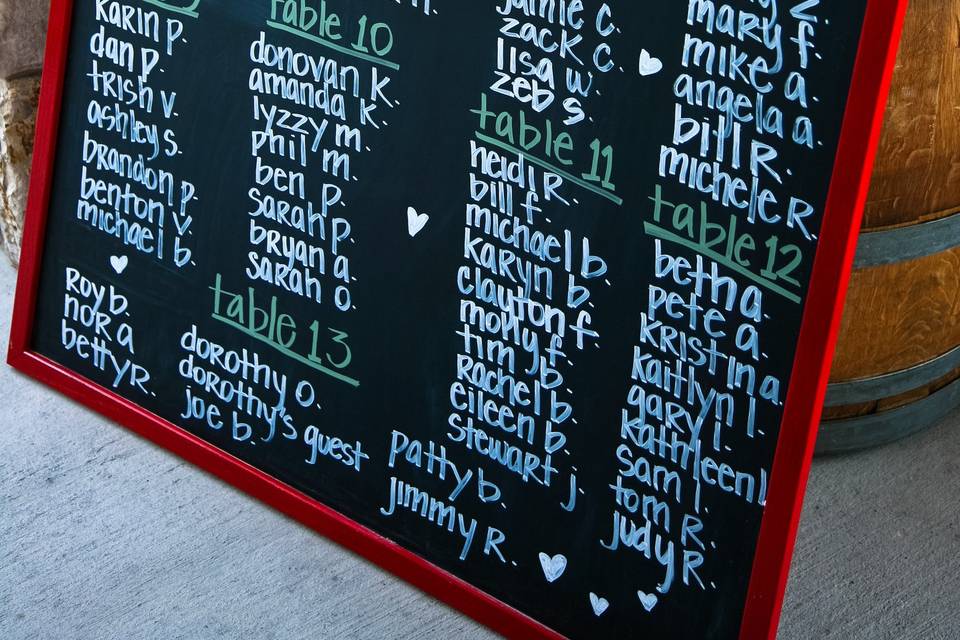 karin p.
dan p.
trish v.
ashley s.
brandon p.
benton v.
michael b.
Roy b.
nora
betty R.
table 10
donovan k.
amanda k.
lyzzy m.
phil m.
ben p.
sarah p.
bryan a.
sarah o.
table 13
dorothy o.
dorothy's guest
joe b.
jamie c.
zack c.
lisa w.
zeb s.
table 11
heidi R.
bill f.
michael b.
karyn b.
clayton f
molly f.
tim b.
Rachel b.
eileen b.
stewart j.
patty b.
jimmy R.
mary f.
mike a.
angela a.
bill R.
michele R.
table 12
beth a.
pete a.
kristin a.
kaitlyn l.
gary l.
kathleen l.
sam l.
tom R.
judy R.